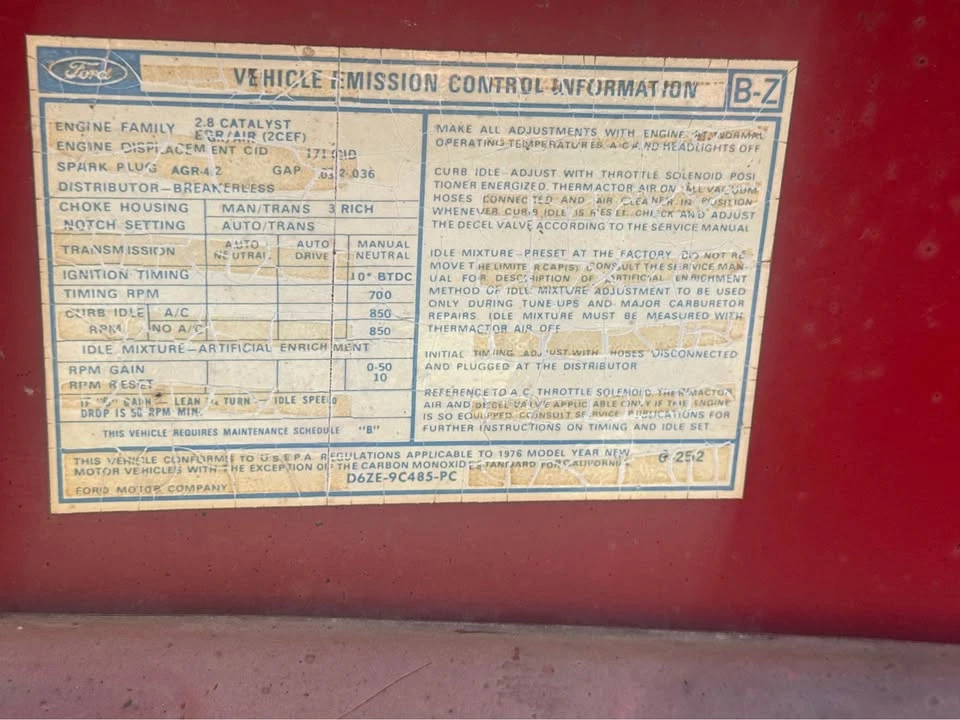 Ford
VEHICLE EMISSION CONTROL INFORMATION
B-Z
ENGINE FAMILY 2.8 CATALYST
EGR/AIR (2CEF)
ENGINE DISPLACEMENT CID 171 CID
SPARK PLUG GAP
DISTRIBUTOR-BREAKERLESS
CHOKE HOUSING MAN/TRANS 3 RICH
NOTCH SETTING AUTO/TRANS
TRANSMISSION AUTO NEUTRAL AUTO DRIVE MANUAL NEUTRAL
IGNITION TIMING 10° BTDC
TIMING RPM 700
CURB IDLE A/C 850
RPM NO A/C 850
IDLE MIXTURE-ARTIFICIAL ENRICHMENT
RPM GAIN 0-50
RPM RESET 10
IF "0" GAIN - LEAN TURN - IDLE SPEED
DROP IS 50 RPM MIN.
THIS VEHICLE REQUIRES MAINTENANCE SCHEDULE "B"
MAKE ALL ADJUSTMENTS WITH ENGINE AT NORMAL
OPERATING TEMPERATURES A/C AND HEADLIGHTS OFF
CURB IDLE-ADJUST WITH THROTTLE SOLENOID POSI
TIONER ENERGIZED, THERMACTOR AIR ON ALL VACUUM
HOSES CONNECTED AND AIR CLEANER IN POSITION
WHENEVER CURB IDLE IS RESET. CHECK AND ADJUST
THE DECEL VALVE ACCORDING TO THE SERVICE MANUAL
IDLE MIXTURE-PRESET AT THE FACTORY. DO NOT RE
MOVE THE LIMITER CAP(S). CONSULT THE SERVICE MAN
UAL FOR DESCRIPTION OF ARTIFICIAL ENRICHMENT
METHOD OF IDLE MIXTURE ADJUSTMENT TO BE USED
ONLY DURING TUNE-UPS AND MAJOR CARBURETOR
REPAIRS. IDLE MIXTURE MUST BE MEASURED WITH
THERMACTOR AIR OFF
INITIAL TIMING ADJUST WITH HOSES DISCONNECTED
AND PLUGGED AT THE DISTRIBUTOR
REFERENCE TO A.C. THROTTLE SOLENOID, THERMACTOR
AIR AND DECEL VALVE APPLICABLE ONLY IF THE ENGINE
IS SO EQUIPPED. CONSULT SERVICE PUBLICATIONS FOR
FURTHER INSTRUCTIONS ON TIMING AND IDLE SET.
THIS VEHICLE CONFORMS TO U.S.E.P.A. REGULATIONS APPLICABLE TO 1976 MODEL YEAR NEW
MOTOR VEHICLES WITH THE EXCEPTION OF THE CARBON MONOXIDE STANDARD FOR CALIFORNIA
FORD MOTOR COMPANY D6ZE-9C485-PC